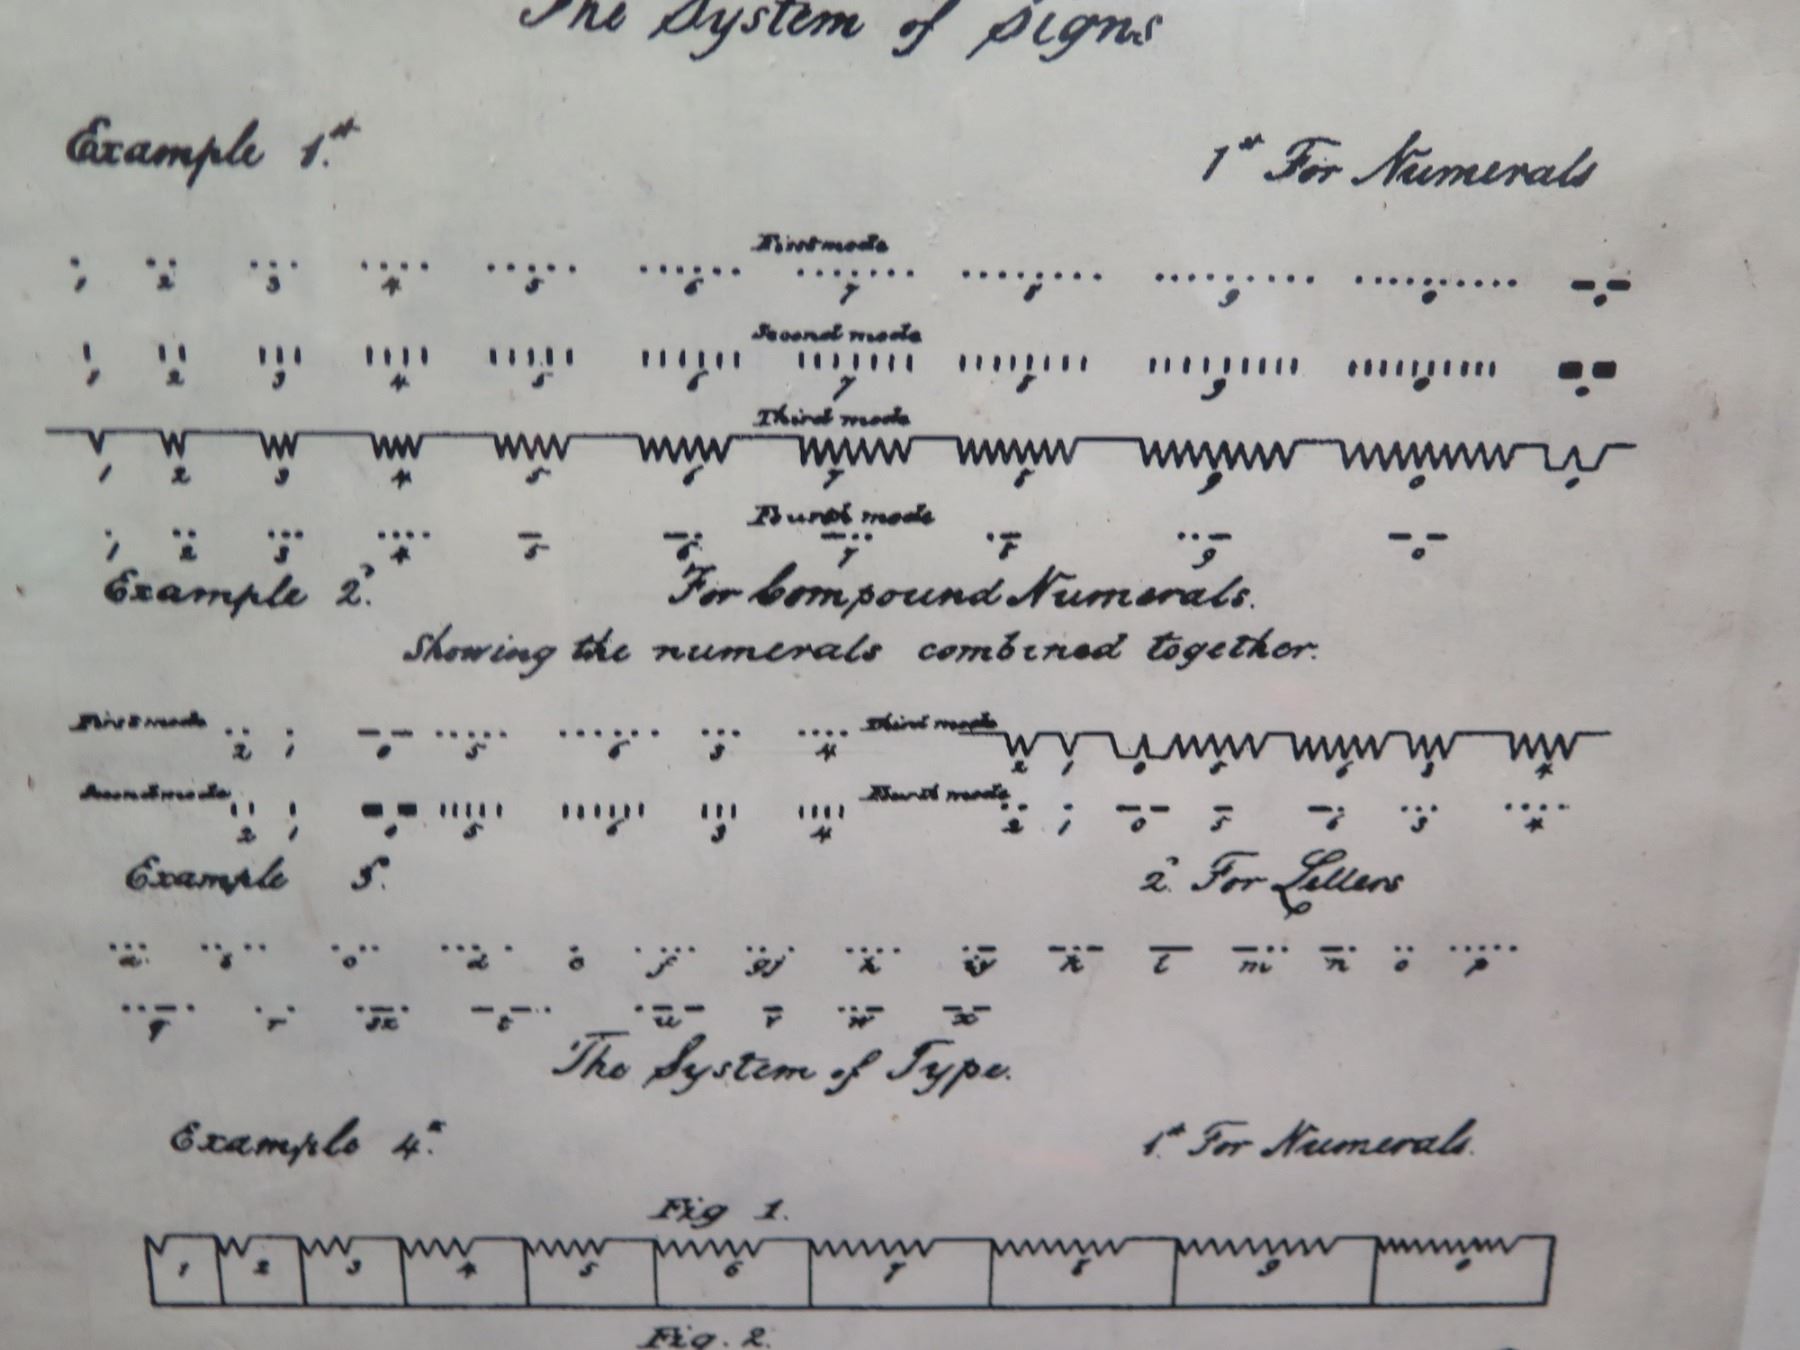 The System of Signs
Example 1.st
1st For Numerals
First mode
1 2 3 4 5 6 7 8 9 0 0
Second mode
1 2 3 4 5 6 7 8 9 0 0
Third mode
1 2 3 4 5 6 7 8 9 0 0
Fourth mode
1 2 3 4 5 6 7 8 9 0
Example 2.d
For Compound Numerals.
Showing the numerals combined together.
First mode 2 1 0 5 6 3 4
Third mode 2 1 0 5 6 3 4
Second mode 2 1 0 5 6 3 4
Fourth mode 2 1 0 5 6 3 4
Example 3.
2.d For Letters
a b c d e f gj h iy k l m n o p
q r sz t u v w x
The System of Type.
Example 4.
1st For Numerals.
Fig 1.
1 2 3 4 5 6 7 8 9 0
Fig. 2.